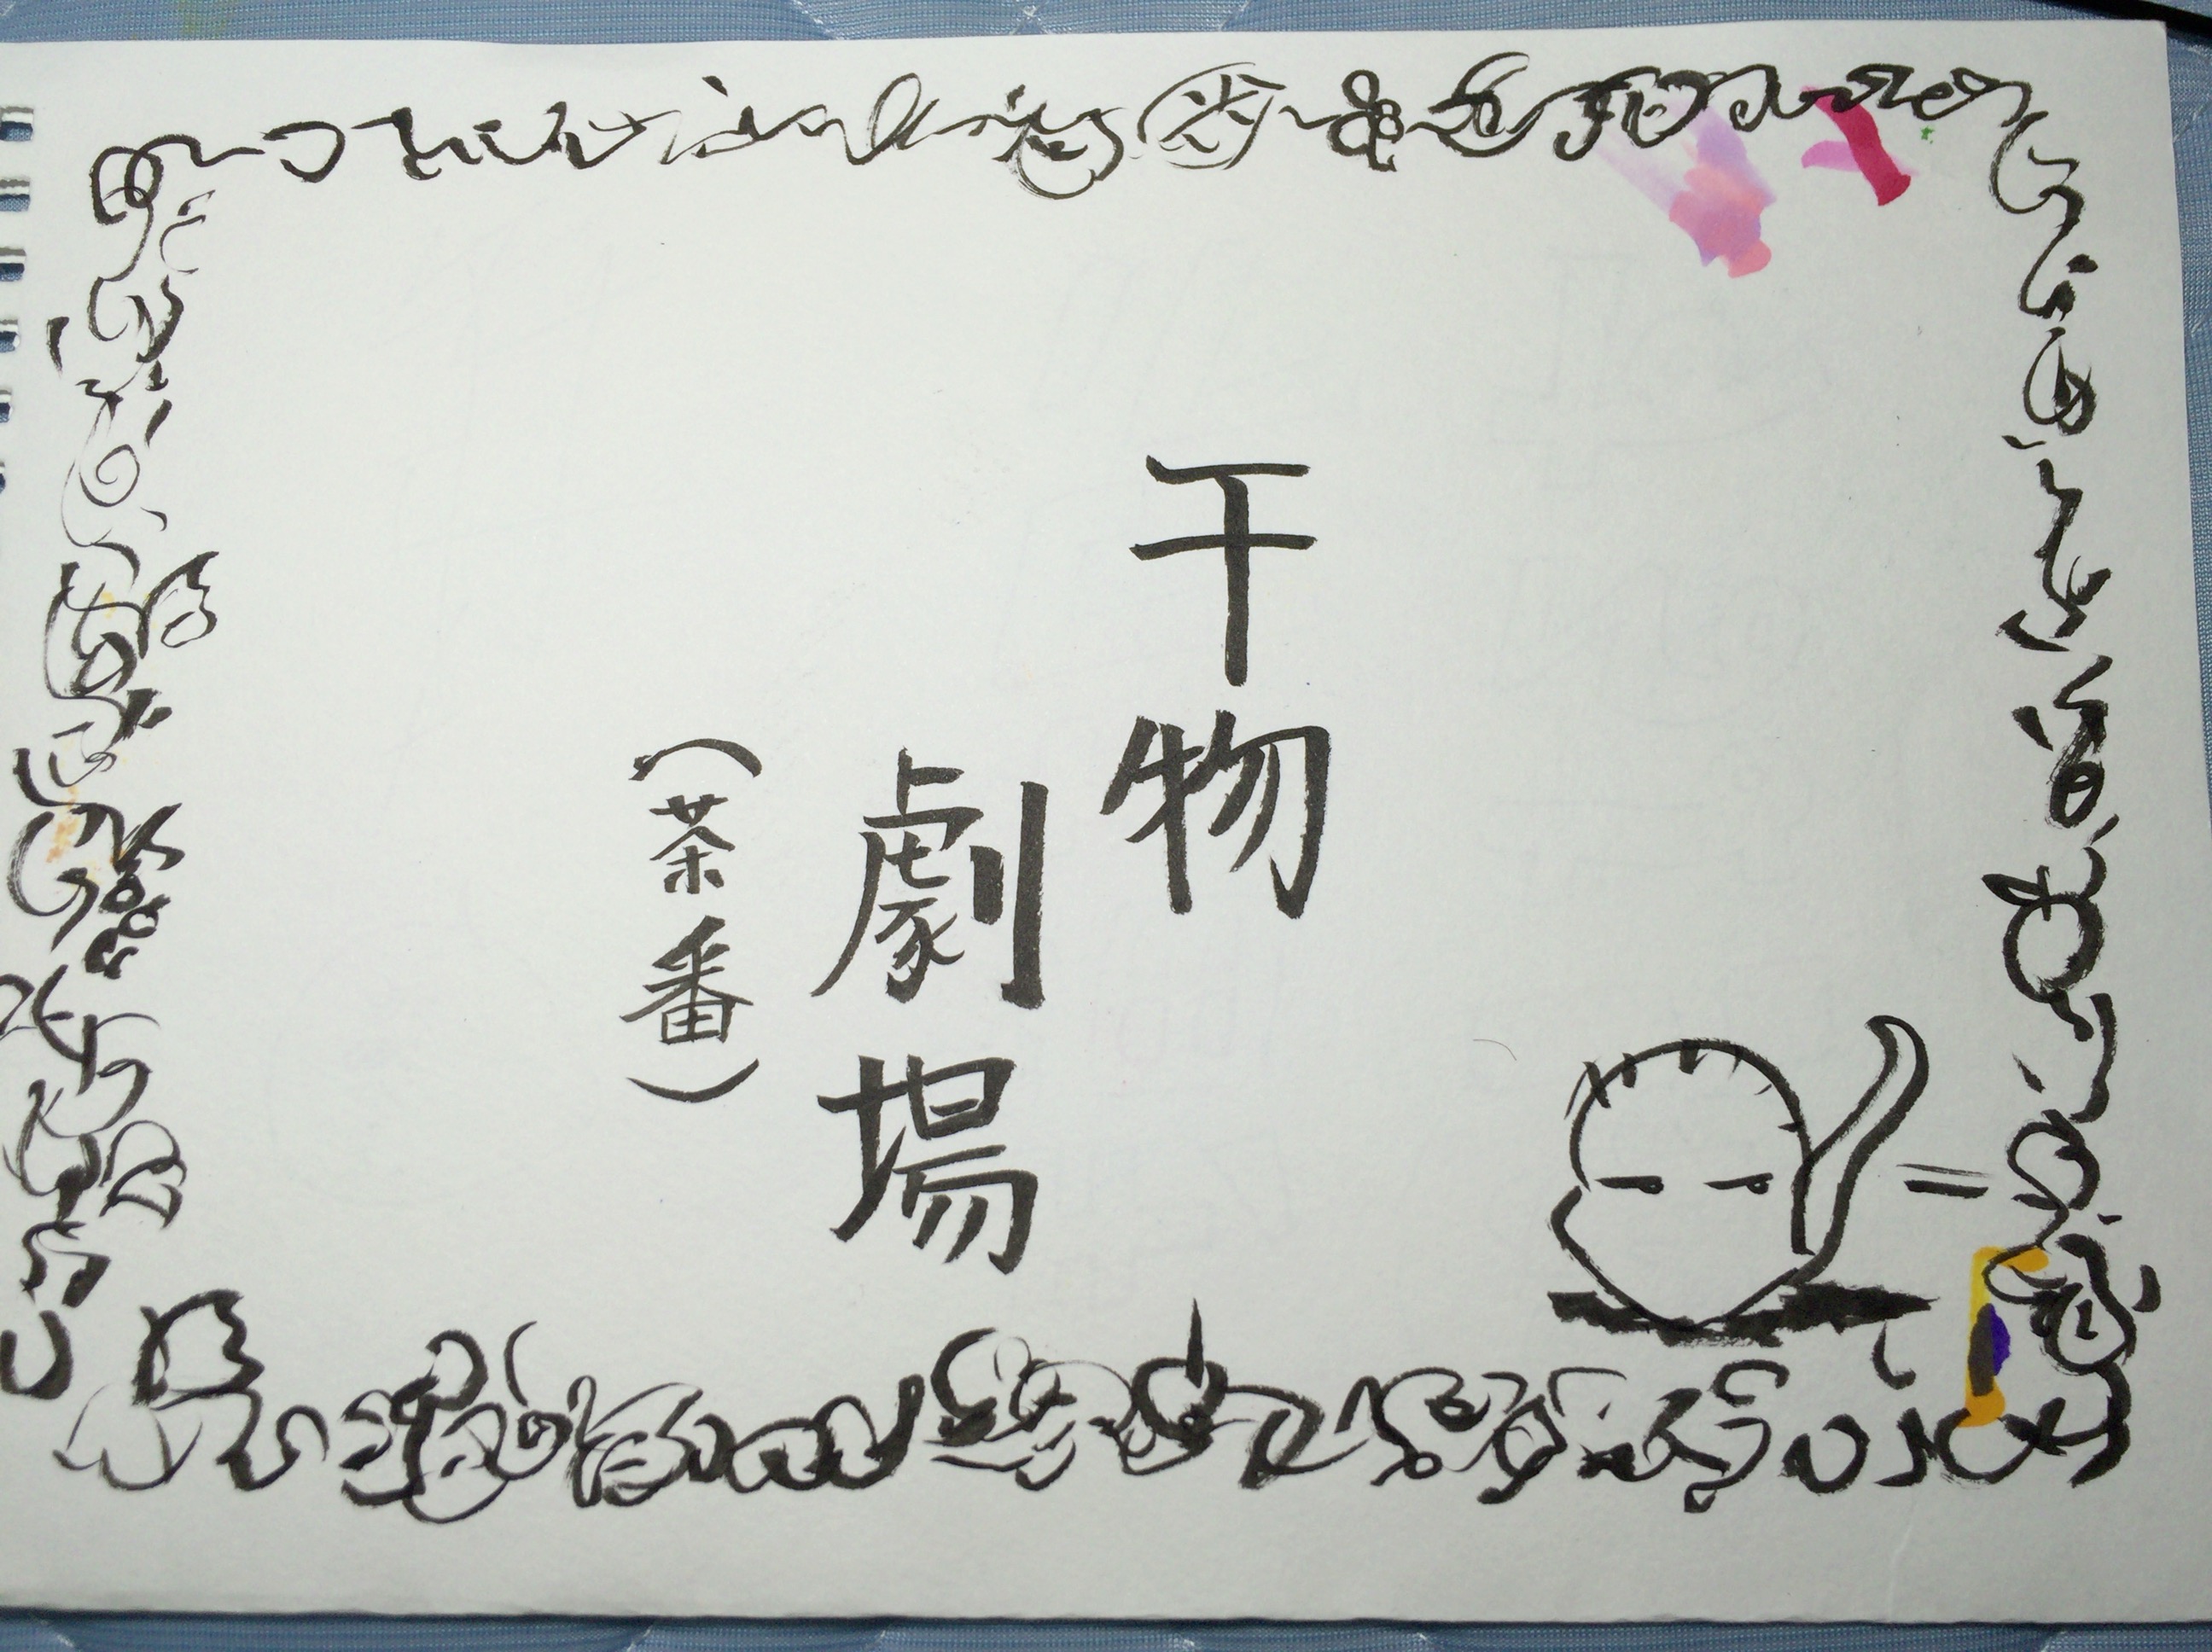 干物
劇場
(茶番)